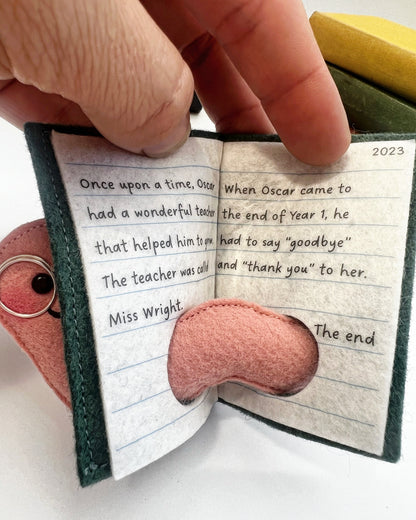 Once upon a time, Oscar
had a wonderful teacher
that helped him to grow.
The teacher was called
Miss Wright.
2023
When Oscar came to
the end of Year 1, he
had to say "goodbye"
and "thank you" to her.
The end